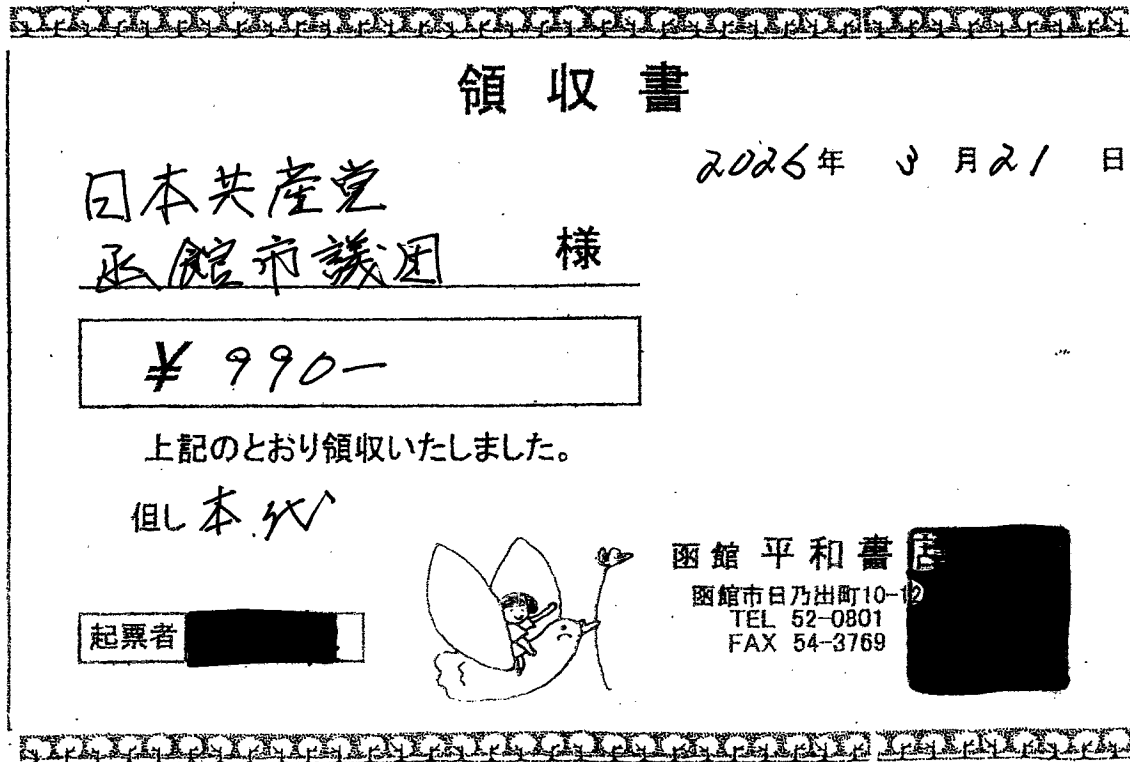 領収書
2026年 3月21日
日本共産党
函館市議団 様
¥990-
上記のとおり領収いたしました。
但し 本代
函館 平和書店
函館市日乃出町10-12
TEL 52-0801
FAX 54-3769
起票者